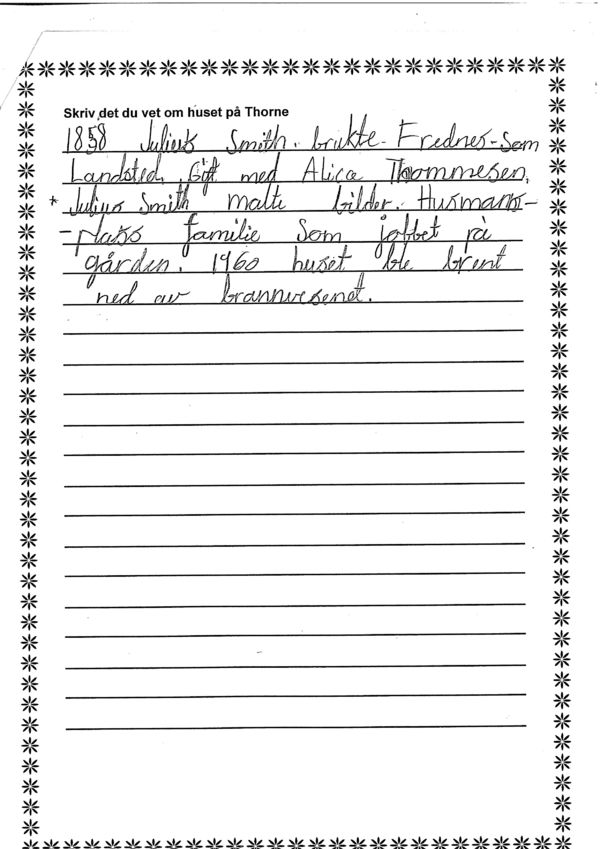 Skriv det du vet om huset på Thorne
1858 Julius Smith. brukte Frednes-som
Landsted. Gift med Alice Thommesen.
* Julius Smith malte bilder. Husmans-
-plass familie som jobbet på
gården. 1960 huset ble brent
ned av brannvesenet.